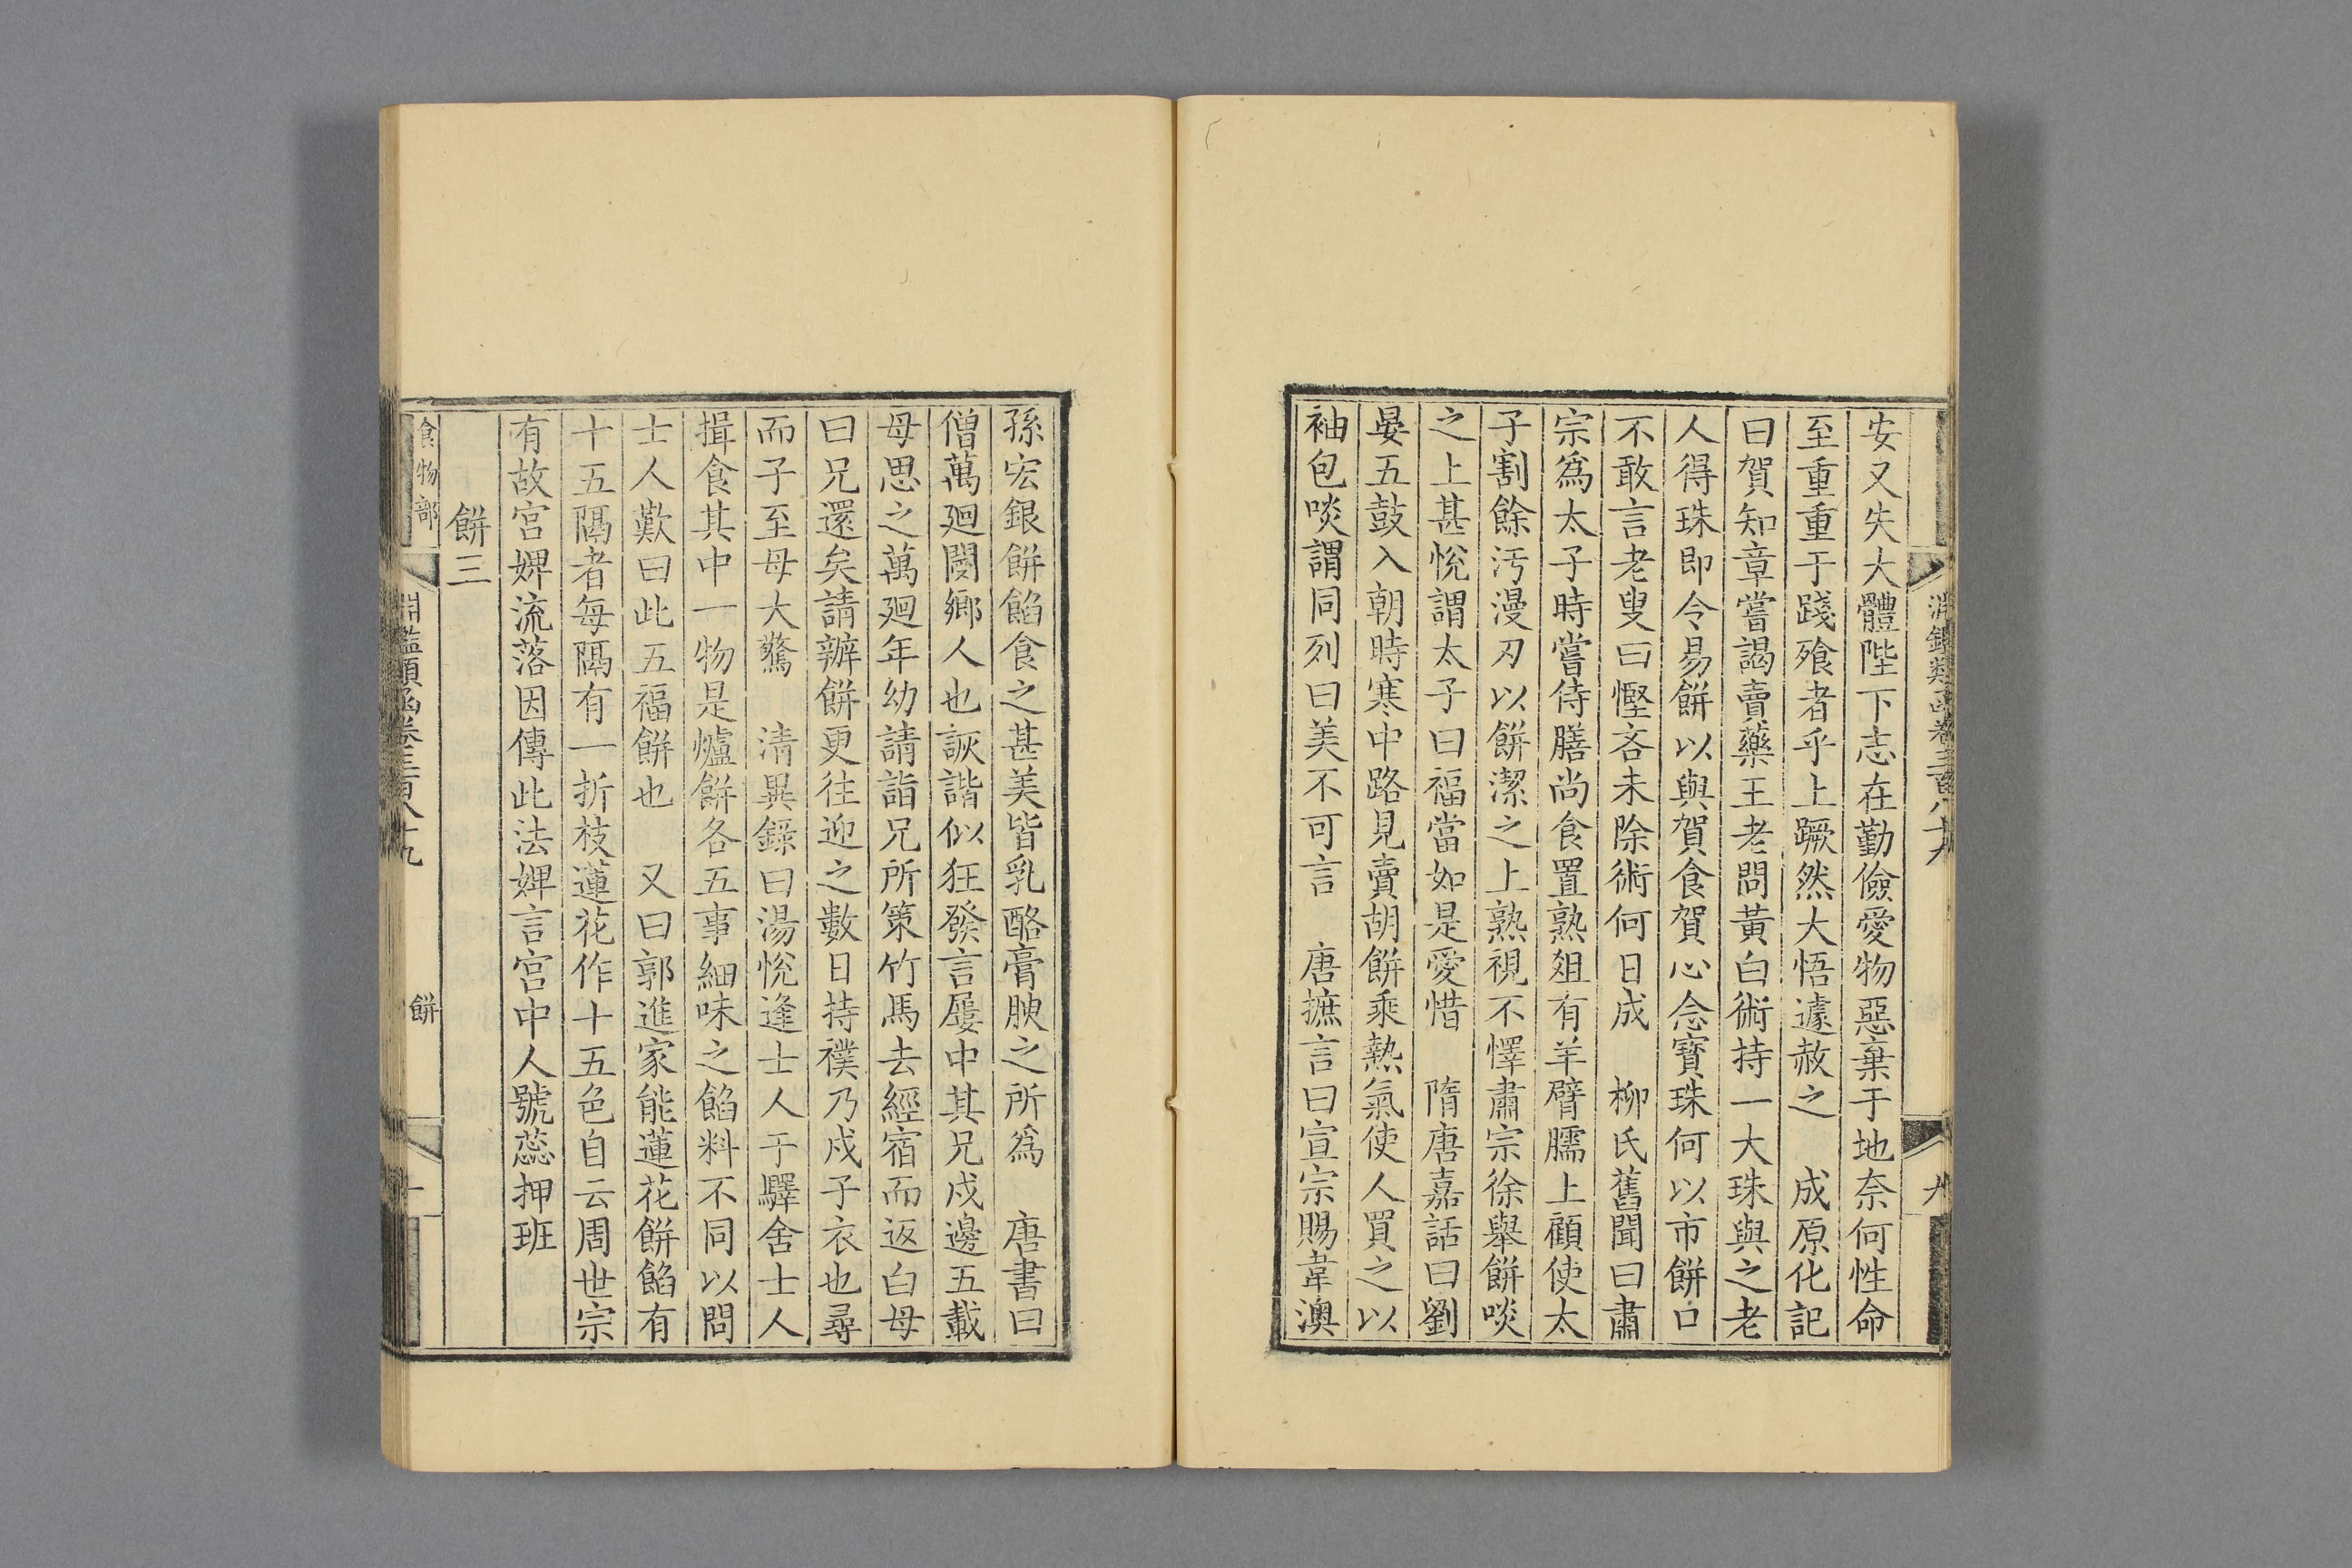 安又失大體陛下志在勤儉愛物惡棄于地奈何性命
至重重于踐飱者乎上蹶然大悟遽赦之　成原化記
曰賀知章嘗謁賣藥王老問黃白術持一大珠與之老
人得珠即令易餅以與賀食賀心念寶珠何以市餅口
不敢言老叟曰慳吝未除術何日成　柳氏舊聞曰肅
宗爲太子時嘗侍膳尚食置熟俎有羊臂臑上顧使太
子割餘汚漫刃以餅潔之上熟視不懌肅宗徐舉餅啖
之上甚悅謂太子曰福當如是愛惜　隋唐嘉話曰劉
晏五鼓入朝時寒中路見賣胡餅乘熱氣使人買之以
袖包啖謂同列曰美不可言　唐摭言曰宣宗賜韋澳
孫宏銀餅餡食之甚美皆乳酪膏腴之所爲　唐書曰
僧萬廻閿鄉人也詼諧似狂發言屢中其兄戍邊五載
母思之萬廻年幼請詣兄所策竹馬去經宿而返白母
曰兄還矣請辦餅更往迎之數日持襆乃戍子衣也尋
而子至母大驚　清異錄曰湯悅逢士人于驛舍士人
揖食其中一物是爐餅各五事細味之餡料不同以問
士人歎曰此五福餅也　又曰郭進家能蓮花餅餡有
十五隔者每隔有一折枝蓮花作十五色自云周世宗
有故宮婢流落因傳此法婢言宮中人號蕊押班
餅三
食物部　淵鑑類函卷三百八十九　餅　十